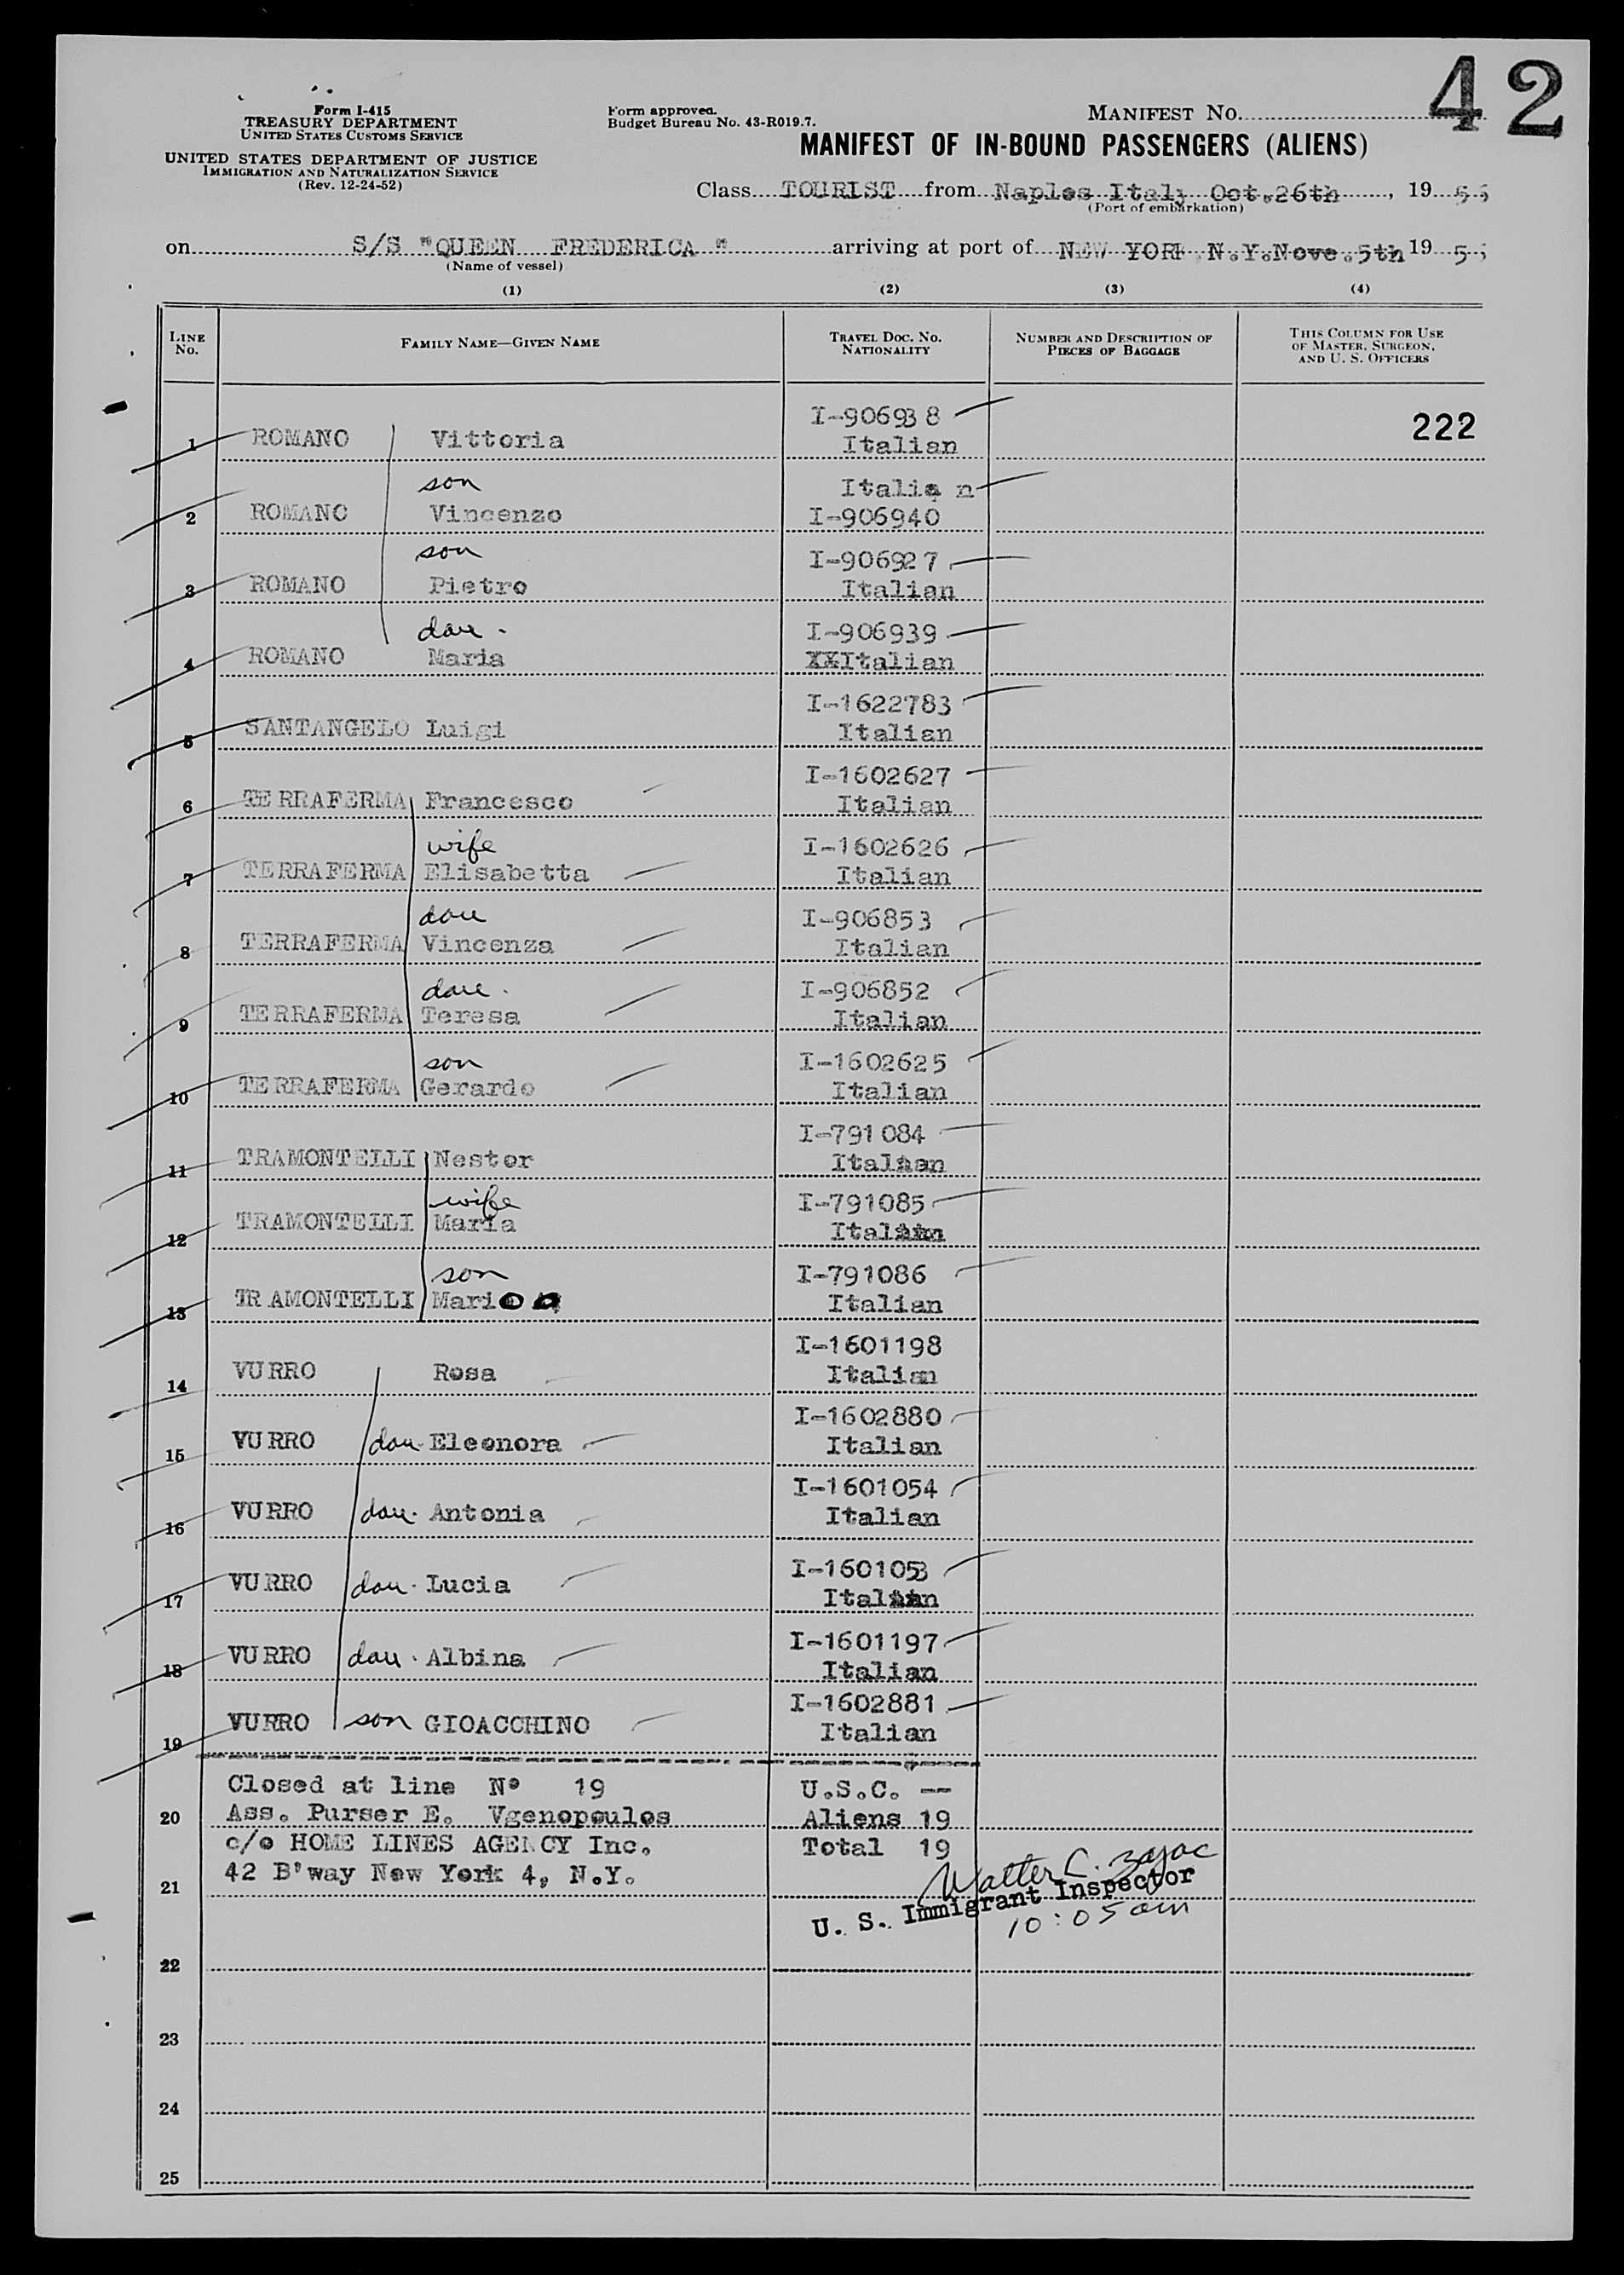 42
Form I-415
TREASURY DEPARTMENT
UNITED STATES CUSTOMS SERVICE
UNITED STATES DEPARTMENT OF JUSTICE
IMMIGRATION AND NATURALIZATION SERVICE
(Rev. 12-24-52)
Form approved.
Budget Bureau No. 43-R019.7.
MANIFEST No.
MANIFEST OF IN-BOUND PASSENGERS (ALIENS)
Class TOURIST from Naples Italy Oct.26th, 19
(Port of embarkation)
on S/S "QUEEN FREDERICA" arriving at port of NEW YORK N.Y.Nove.5th 19
(Name of vessel)
(1) (2) (3) (4)
LINE No. FAMILY NAME—GIVEN NAME TRAVEL DOC. No. NATIONALITY NUMBER AND DESCRIPTION OF PIECES OF BAGGAGE THIS COLUMN FOR USE OF MASTER, SURGEON, AND U. S. OFFICERS
I-906938
222
1 ROMANO Vittoria Italian
son Italian
2 ROMANO Vincenzo I-906940
son I-906927
3 ROMANO Pietro Italian
dau. I-906939
4 ROMANO Maria XXItalian
I-1622783
5 SANTANGELO Luigi Italian
I-1602627
6 TERRAFERMA Francesco Italian
wife I-1602626
7 TERRAFERMA Elisabetta Italian
dau I-906853
8 TERRAFERMA Vincenza Italian
dau. I-906852
9 TERRAFERMA Teresa Italian
son I-1602625
10 TERRAFERMA Gerardo Italian
I-791084
11 TRAMONTELLI Nestor Italian
wife I-791085
12 TRAMONTELLI Maria Italian
son I-791086
13 TRAMONTELLI Mario Italian
I-1601198
14 VURRO Rosa Italian
I-1602880
15 VURRO dau. Eleonora Italian
I-1601054
16 VURRO dau. Antonia Italian
I-1601053
17 VURRO dau. Lucia Italian
I-1601197
18 VURRO dau. Albina Italian
I-1602881
19 VURRO son GIOACCHINO Italian
Closed at line Nº 19 U.S.C. --
20 Ass. Purser E. Vgenopoulos Aliens 19
c/o HOME LINES AGENCY Inc. Total 19
21 42 B'way New York 4, N.Y.
Walter C. Zajac
U. S. Immigrant Inspector
10:05 am
22
23
24
25